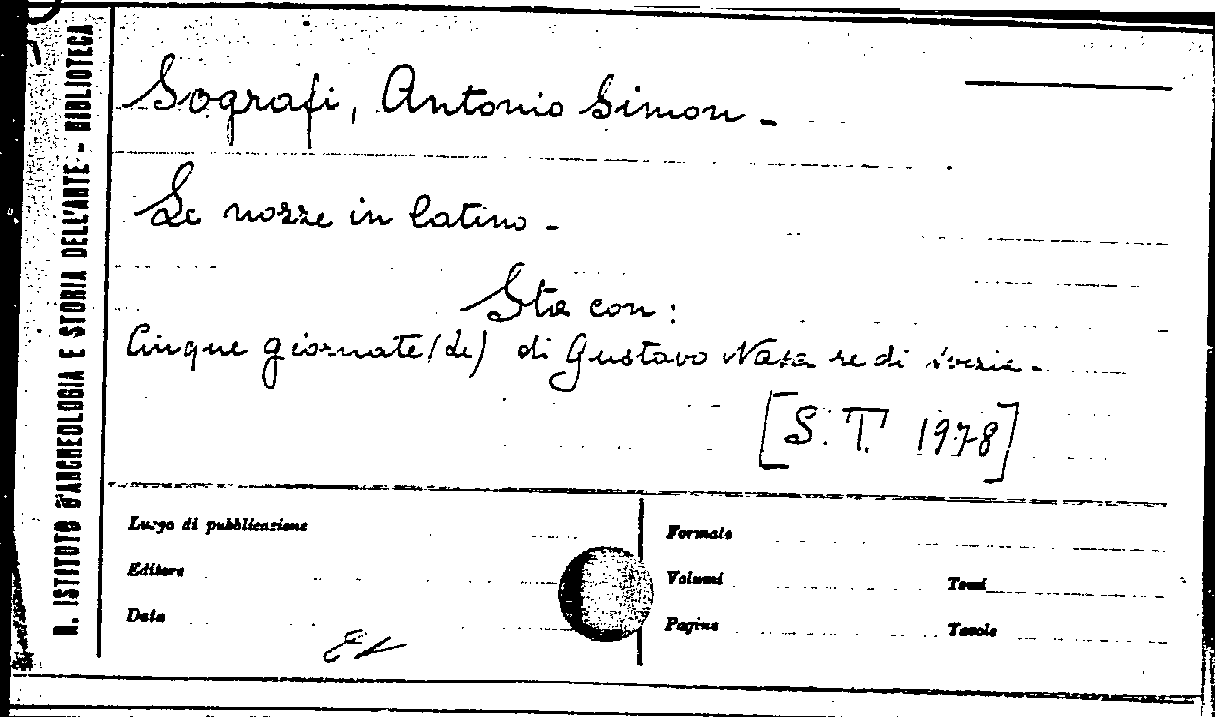 R. ISTITUTO D'ARCHEOLOGIA E STORIA DELL'ARTE - BIBLIOTECA
Sografi, Antonio Simon -
Le nozze in latino -
Sta con:
Cinque giornate (Le) di Gustavo Vasa re di Svezia -
[S. T. 1978]
Luogo di pubblicazione
Editore
Data
Formato
Volumi Tomi
Pagine Tavole